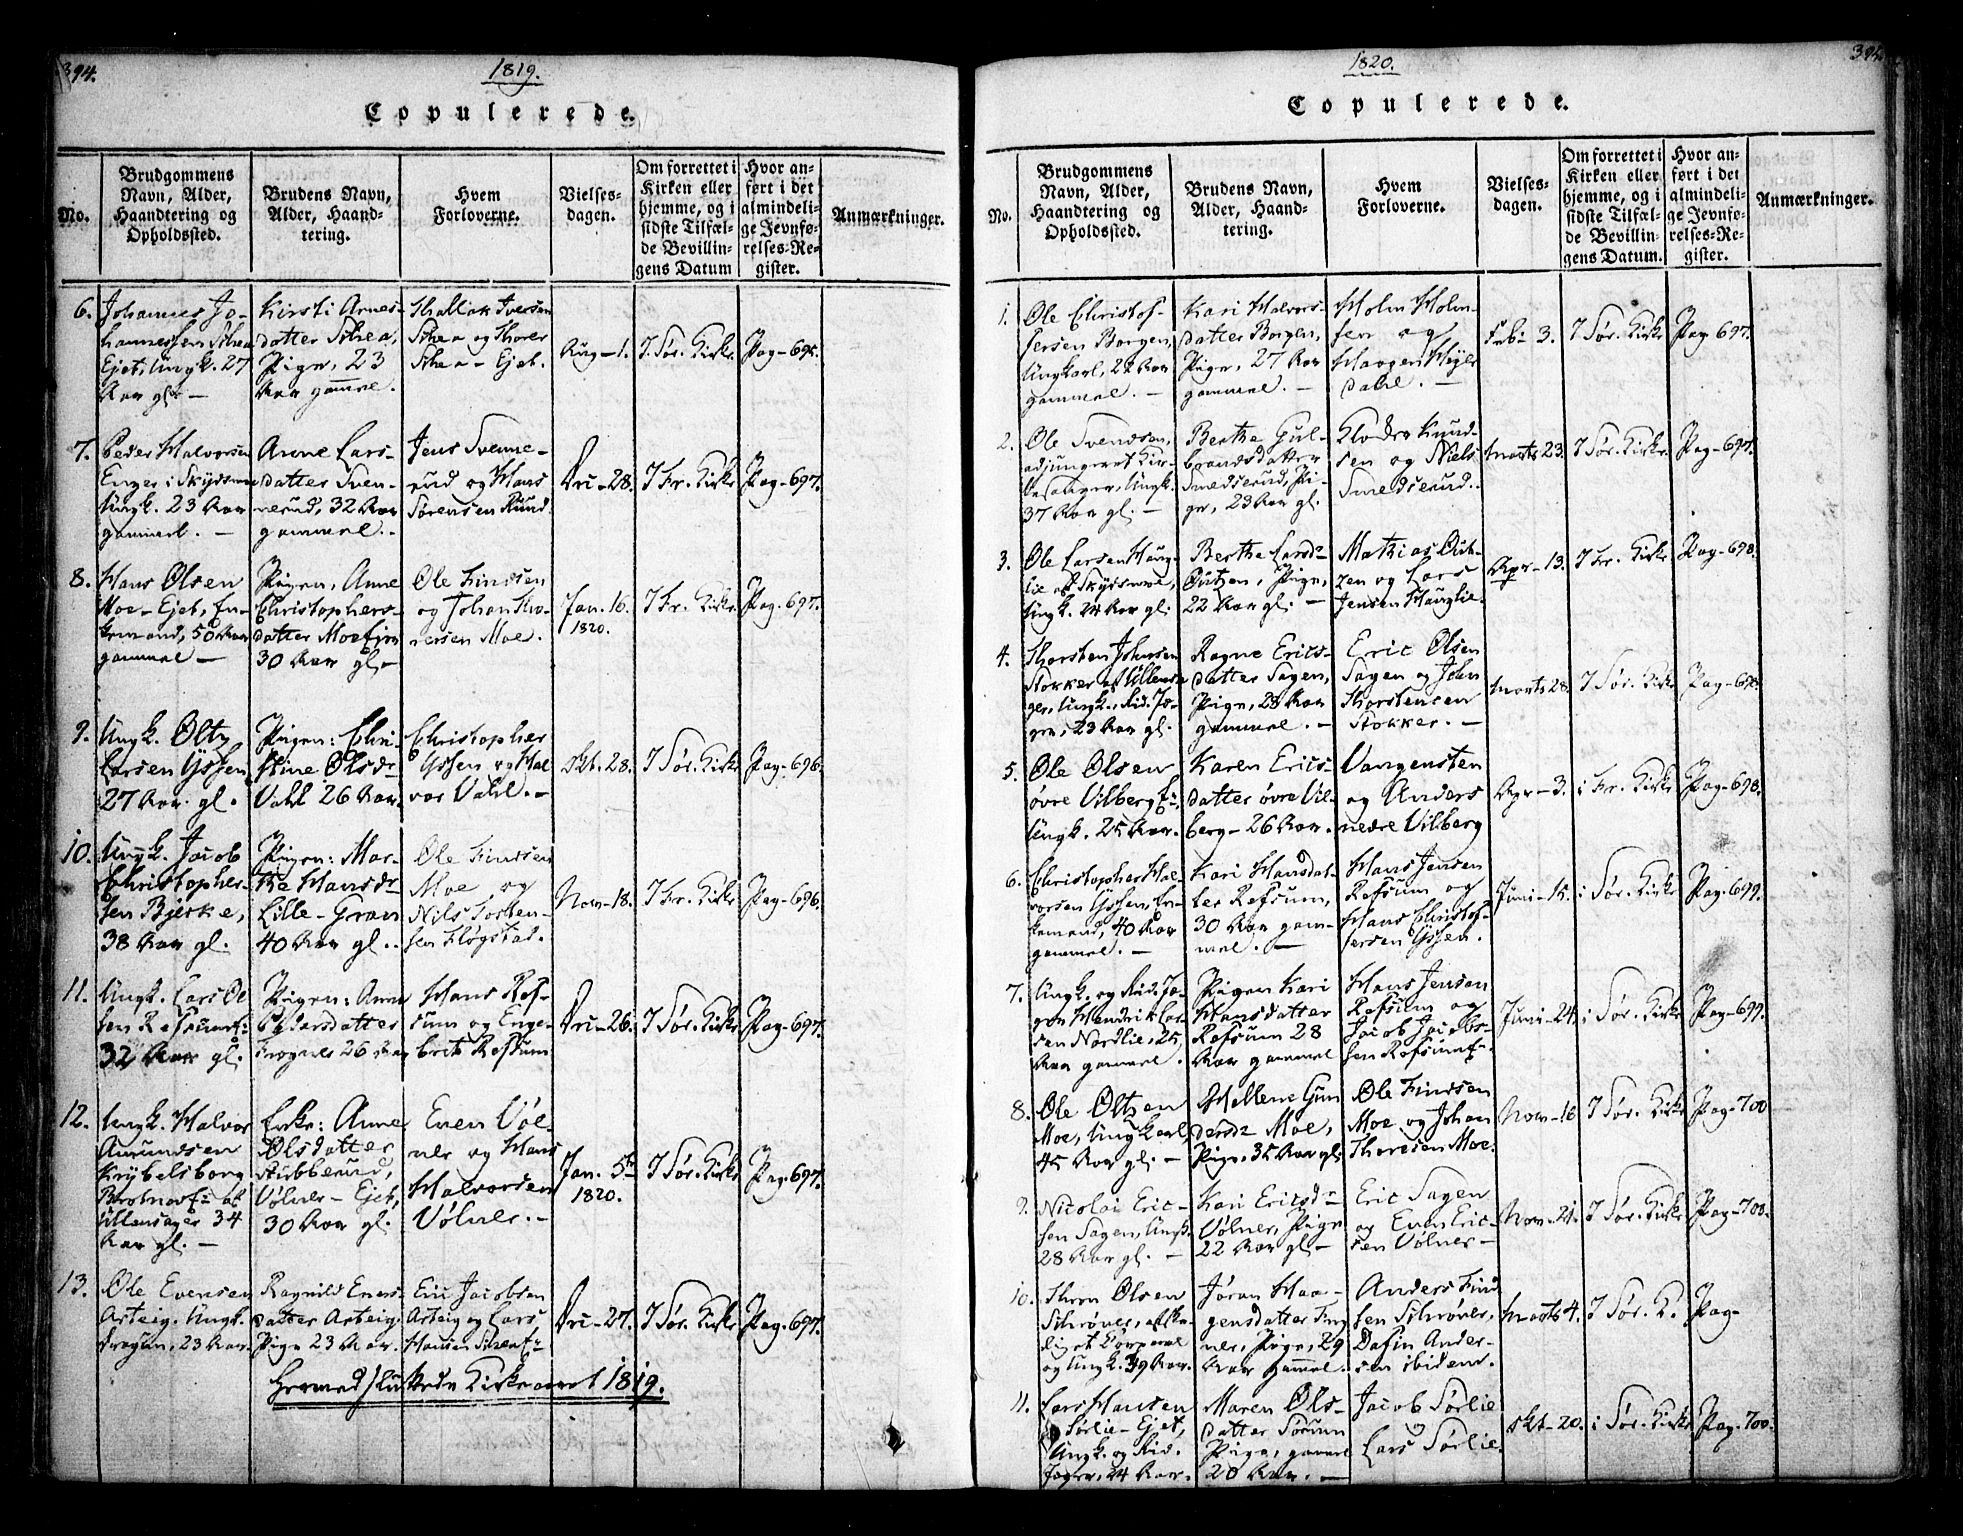 394.
1819.
Copulerede.
No.
Brudgommens
Navn, Alder,
Haandtering og
Opholdssted.
Brudens Navn,
Alder, Haand-
tering.
Hvem
Forloverne.
Vielses-
dagen.
Om forrettet i
Kirken eller
hjemme, og i
sidste Tilfæl-
de Bevillin-
gens Datum
Hvor an-
ført i det
almindeli-
ge Jevnfø-
relses-Re-
gister.
Anmærkninger.
6.
Johannes Jo-
hannessen
Ejet, Ungk. 27
Aar gl. —
Kirsti Arnes-
datter
Pige, 23
Aar gammel.
Thallak Iversen
og Thorer
Ejet.
Aug - 1.
I Sør. Kirke
Pag - 695.
7.
Peder Halvorsen
Enger i Skydsmoe
Ungk. 23 Aar
gammel. —
Anne Lars-
datter Sven-
nerud, 32 Aar
gammel.
Jens Svenne-
rud og Hans
Sørensen Rund.
Dri - 28.
I Fr. Kirke
Pag - 697.
8.
Hans Olsen
Moe - Ejet, En-
kemand, 50 Aar
gammel —
Pigen, Anne
Christophers-
datter Moe
30 Aar gl. —
Ole Findsen
og Johan Tho-
resen Moe.
Jan. 16.
1820.
I Fr. Kirke
Pag. 697.
9.
Ungk. Oltz
Larsen Yssen
27 Aar gl.
Pigen: Chri-
stine Olsdr
Vahl 26 Aar
Christopher
Yssen og Hal
vor Vahl. —
Okt. 28.
I Sør. Kirke
Pag - 696.
10.
Ungk. Jacob
Christopher-
sen Bjerke,
38 Aar gl.
Pigen: Mar-
the Hansdr
Lille-Gran
40 Aar gl.
Ole Findsen
Moe og
Nils Torsten-
sen Fløgstad.
Nov - 18.
I Fr. Kirke
Pag - 696.
11.
Ungk. Lars Ol
sen Refsum
32 Aar gl.
Pigen: Anne
Pedersdatter
Frogner 26 Aar
Hans Ref-
sum og Enge-
bret Refsum
Dri - 26.
I Sør. Kirke
Pag - 697.
12.
Ungk. Halvor
Amundsen
Krybelsborg
af
Ullensager 34
Aar gl. —
Enke: Anne
Olsdatter
Stubberud,
Vølner - Ejet,
30 Aar gl.
Even Vøl-
ner og Hans
Halvorsen
Vølner. —
Jan. 5te
1820.
I Sør. Kirke
Pag. 697.
13.
Ole Evensen
Arteig, Ungk.
Dragun, 23 Aar.
Ragnild Eners-
datter Arteig
Pige 23 Aar.
Eric Jacobsen
Arteig og Lars
Hansen
Dri - 27.
I Sør. Kirke
Pag. 697.
Hermed sluttede Kirkeaaret 1819.
1820.
Copulerede.
No.
Brudgommens
Navn, Alder,
Haandtering og
Opholdssted.
Brudens Navn,
Alder, Haand-
tering.
Hvem
Forloverne.
Vielses-
dagen.
Om forrettet i
Kirken eller
hjemme, og i
sidste Tilfæl-
de Bevillin-
gens Datum.
Hvor an-
ført i det
almindeli-
ge Jevnfø-
relses-Re-
gister.
Anmærkninger.
1.
Ole Christof-
fersen Borgen,
Ungkarl, 22 Aar
gammel. —
Kari Halvors-
datter Borgen,
Pige, 27 Aar
gammel. —
Holm Holm-
sen og
Haagen
dahl. —
Feb: 3.
I Sør. Kirke
Pag 697.
2.
Ole Svendsen,
adjungeret Kir-
kesanger, Ungk.
37 Aar gl. —
Berthe Gul-
brandsdatter
Smedserud, Pi-
ge, 23 Aar gl.
Knud-
sen og Niels
Smedserud.
Marts 23.
I Sør. Kirke
Pag - 697.
3.
Ole Larsen Haug-
lie af Skydsmoe,
Ungk. 24 Aar gl.
Berthe Larsdr
Pige,
22 Aar gl. —
Mathias
og Lars
Jensen Hauglie.
Apr - 13.
I Fr. Kirke
Pag - 698.
4.
Thorsten Johansen
Stokker af Ullensa
ger, Ungk., Rid. Jæ-
ger, 23 Aar gl.
Ragne Erics-
datter Sagen,
Pige, 28 Aar
gammel. —
Eric Olsen
Sagen og John
Thorstensen
Stokker. —
Marts 28.
I Sør. Kirke
Pag - 698.
5.
Ole Olsen
øvre Vilberg
Ungk. 25 Aar.
Karen Erics-
datter øvre Vil-
berg - 26 Aar.
Vangensten
og Anders
nedre Vilberg
Apr - 3.
i Fr. Kirke
Pag - 698.
6.
Christopher Hal-
vorsen Yssen, En-
kemand, 40 Aar
gammel. —
Kari Hansdat-
ter Refsum,
30 Aar gam-
mel. —
Hans Jensen
Refsum og
Hans Christof-
fersen Yssen.
Juni - 15.
i Sør. Kirke
Pag. 699.
7.
Ungk. og Rid. Jæ-
ger Hendrik Lar-
sen Nordlie, 25
Aar gammel.
Pigen Kari
Hansdatter
Refsum 28
Aar gammel
Hans Jensen
Refsum og
Jacob Jacob-
sen Refsum
Juni - 24.
i Sør. Kirke
Pag - 699.
8.
Ole Oltzen
Moe, Ungkarl,
45 Aar gl. —
Hellene Gun
dersdr Moe,
Pige, 35 Aar gl.
Ole Findsen
Moe og Johan
Thoresen Moe.
Nov - 16
I Sør. Kirke
Pag - 700
9.
Nicolai Eric-
sen Sagen, Ungk.
28 Aar gl. —
Kari Ericsdr
Vølner, Pige
22 Aar gl. —
Eric Sagen
og Even Eric-
sen Vølner —
Nov - 21.
I Sør. Kirke
Pag - 700.
10.
Thron Olsen
og Ungk. 39 Aar.
Jøran Haa-
gensdatter
Pige, 29
Aar gammel.
Anders Find
sen
Ander-
sen ibidem.
Marts 4.
I Sør. K.
Pag -
11.
Lars Hansen
Sørlie - Ejet,
Ungk. og Rid.
Jæger, 24 Aar.
Maren Ols-
datter Sørum
Pige, gammel
20 Aar. —
Jacob Sørlie
Lars Sørlie.
Okt - 20.
i Sør. Kirke
Pag. 700.